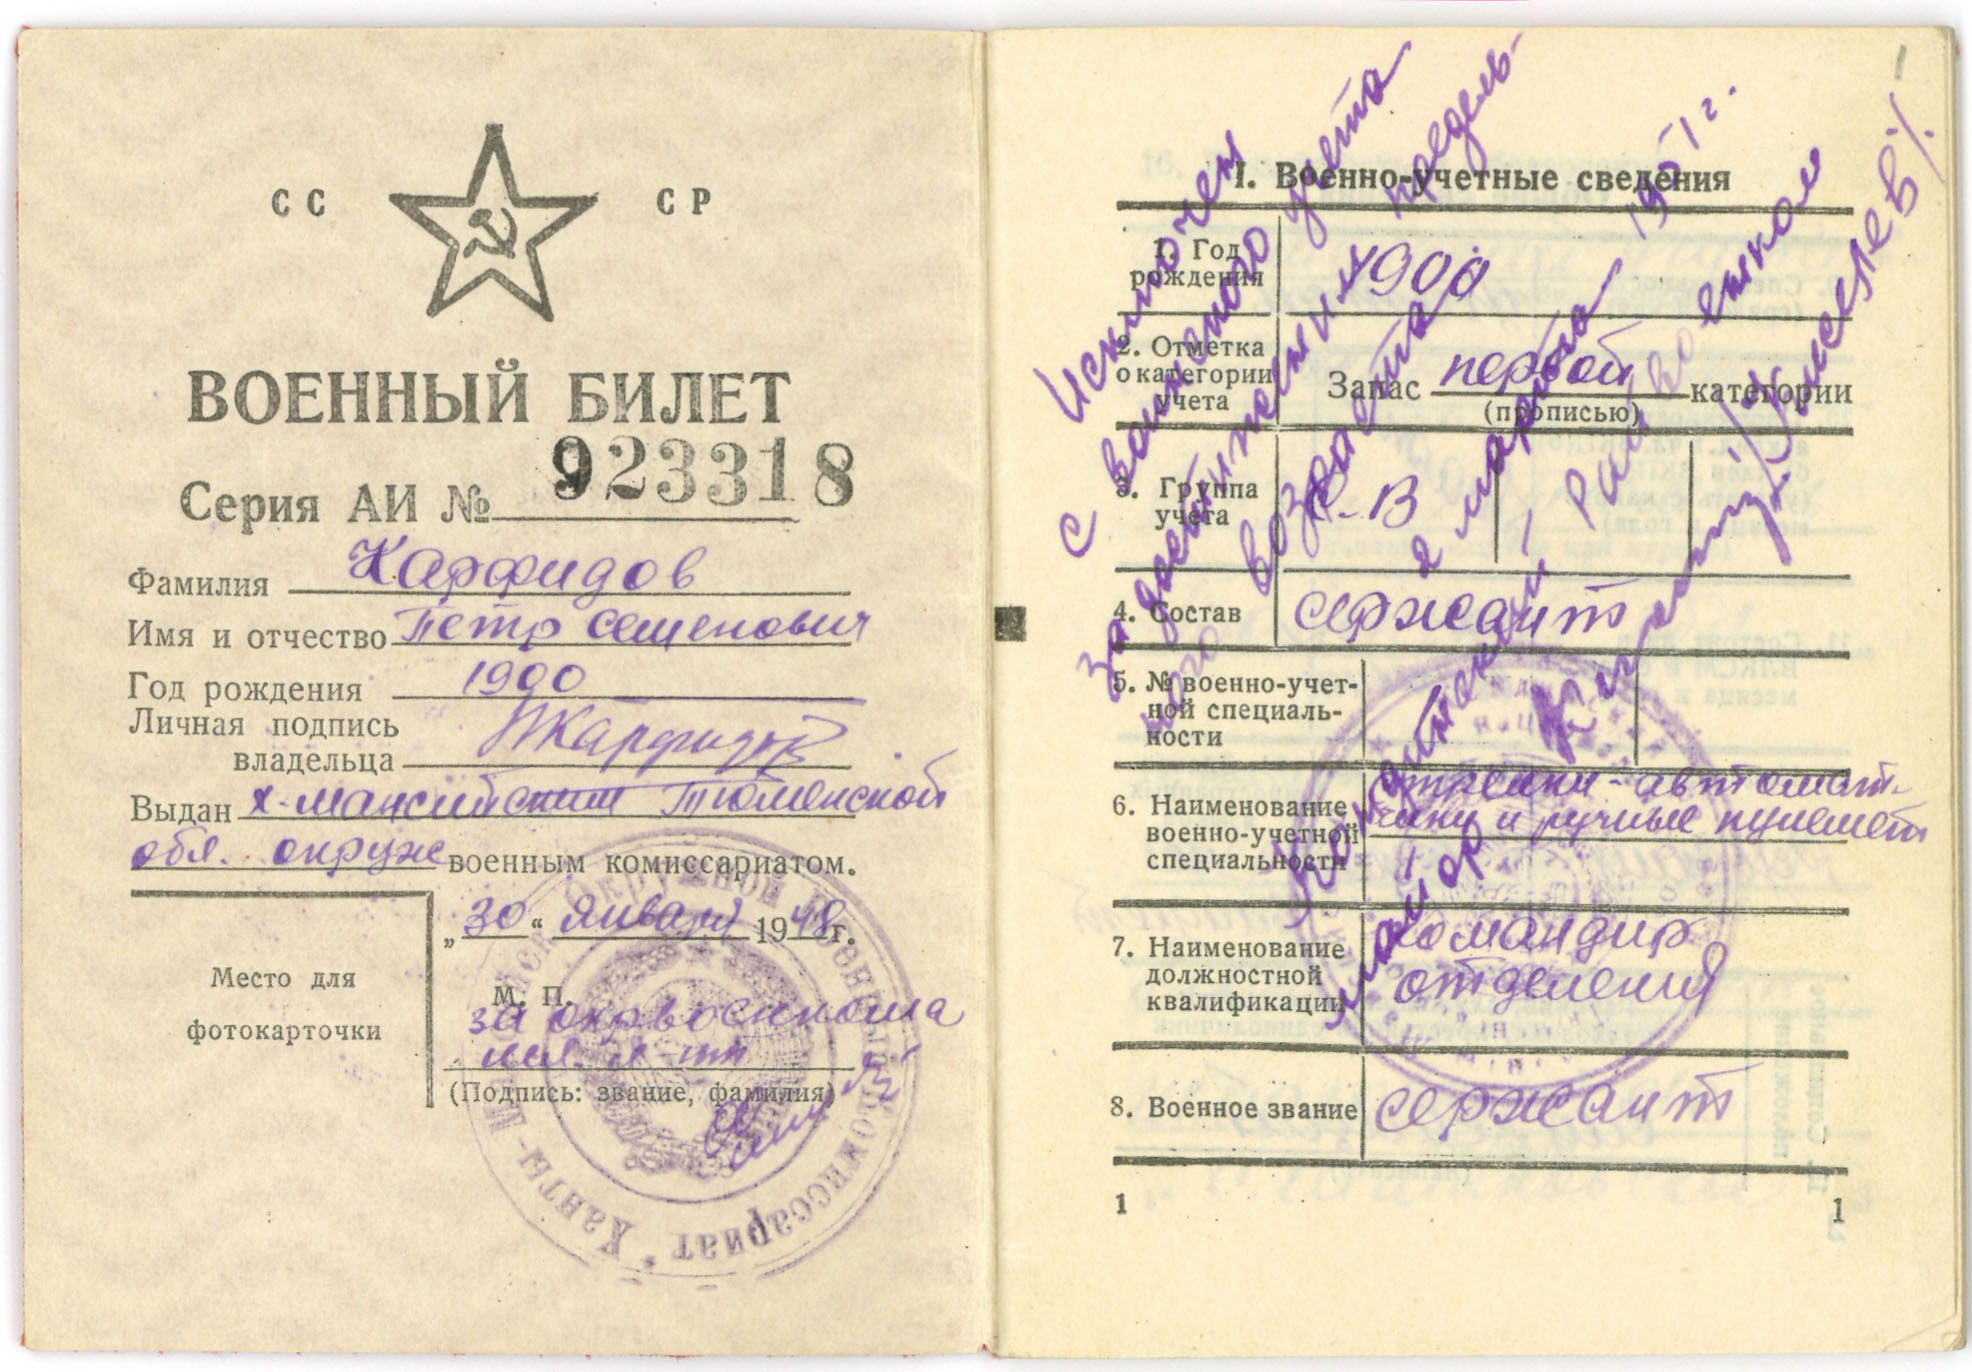 СС СР
ВОЕННЫЙ БИЛЕТ
Серия АИ № 923318
Фамилия Карфидов
Имя и отчество Петр Семенович
Год рождения 1900
Личная подпись
владельца ПКарфидов
Выдан Х-Мансийским Тюменской
обл. окруж военным комиссариатом.
„30“ Января 1948 г.
Место для
фотокарточки
М. П.
за окрвоенкома
(Подпись: звание, фамилия)
Окружной Военный Комиссариат * Ханты-
I. Военно-учетные сведения
1. Год
рождения 1900
2. Отметка
о категории
учета
Запас первой категории
(прописью)
3. Группа
учета
4. Состав сержант
5. № военно-учет-
ной специаль-
ности
6. Наименование
военно-учетной
специальности
стрелки-автомат-
чики и ручные пулемет
7. Наименование
должностной
квалификации
командир
отделения
8. Военное звание сержант
1 1
Исключен
с воинского учета
за достижением предель-
ного возраста
2 марта 1951 г.
Кондинский райвоенком
майор Киселев /Киселев/